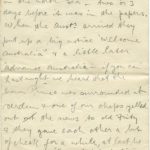 in the North Sea - two or 3
days before it was in the papers.
When the Aust' arrived they
put up a big notice Welcome
Australia & a little later
Advance Australia - if you can
last night we heard that the
was surrounded at
& one of our chaps yelled
out the news to old Fritz
& they gave each other a bit
of cheek for a while, at last he